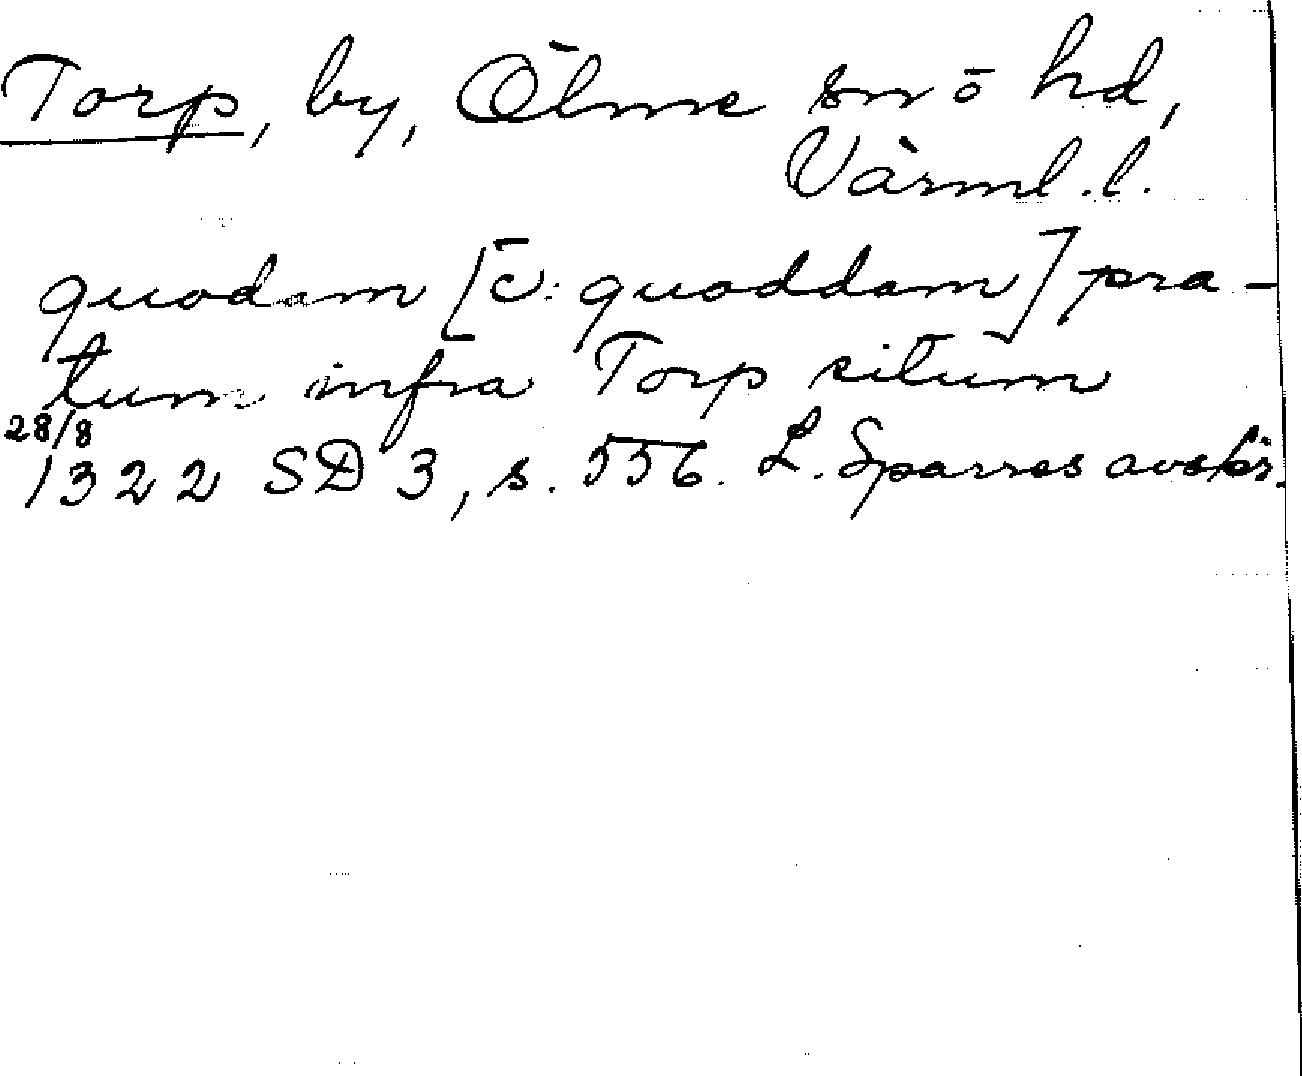 Torp, by, Ölme sn o hd,
Värml. l.
quodam [ɔ: quoddam] pra-
tum infra Torp situm
28/8
1322 SD 3, s. 556. L. Sparres avskr.